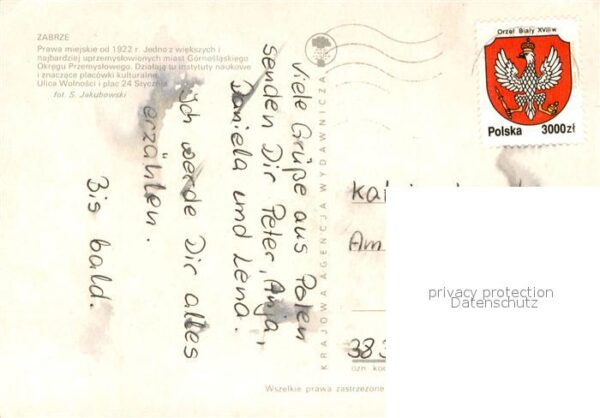 ZABRZE
Prawa miejskie od 1922 r. Jedno z większych i
najbardziej uprzemysłowionych miast Górnośląskiego
Okręgu Przemysłowego. Działają tu instytuty naukowe
i znaczące placówki kulturalne.
Ulica Wolności i plac 24 Stycznia
fot. S. Jakubowski
Viele Grüße aus Polen
senden Dir Peter, Anja,
Daniela und Lena.
Ich werde Dir alles
erzählen.
Bis bald.
KRAJOWA AGENCJA WYDAWNICZA
Orzeł Biały XVIII w
Polska 3000 zł
Am
383
ozn. kod
Wszelkie prawa zastrzeżone
privacy protection
Datenschutz